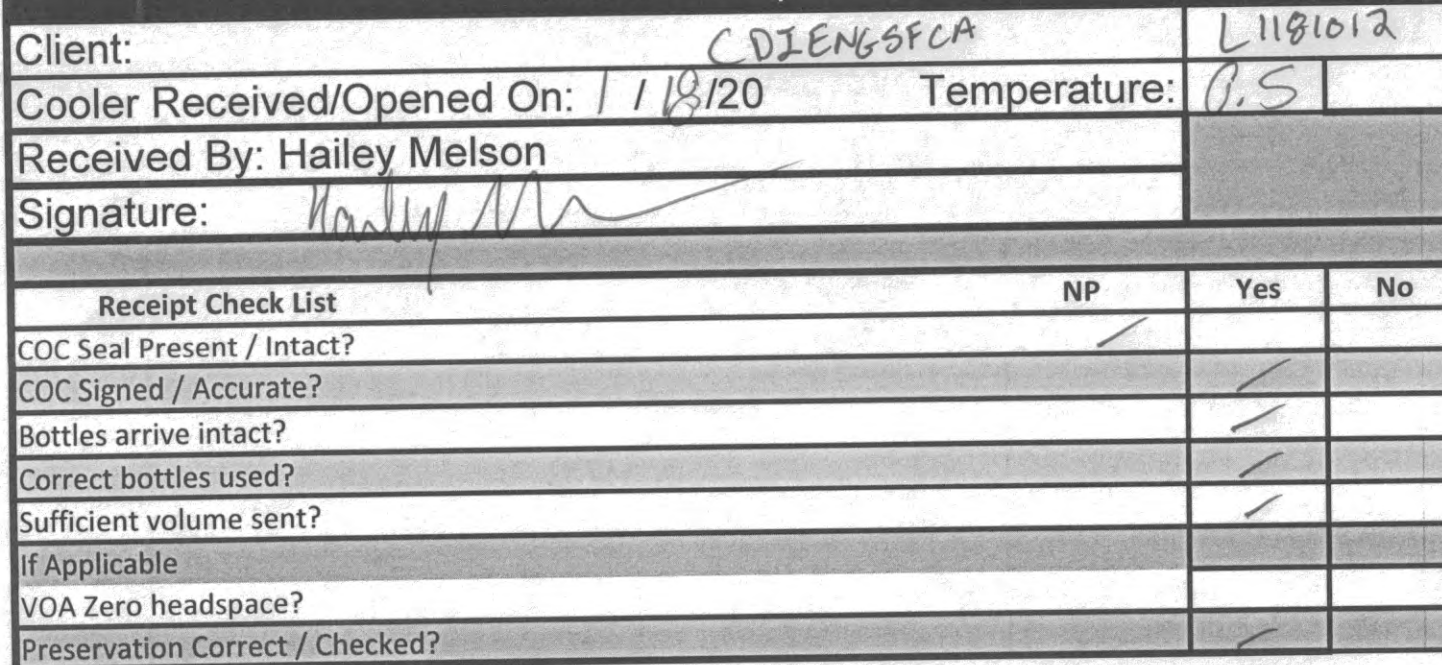 Client: CDIENGSFCA L1181012
Cooler Received/Opened On: 1 / 18/20 Temperature: 0.5
Received By: Hailey Melson
Signature:
Receipt Check List NP Yes No
COC Seal Present / Intact? /
COC Signed / Accurate? /
Bottles arrive intact? /
Correct bottles used? /
Sufficient volume sent? /
If Applicable
VOA Zero headspace?
Preservation Correct / Checked? /